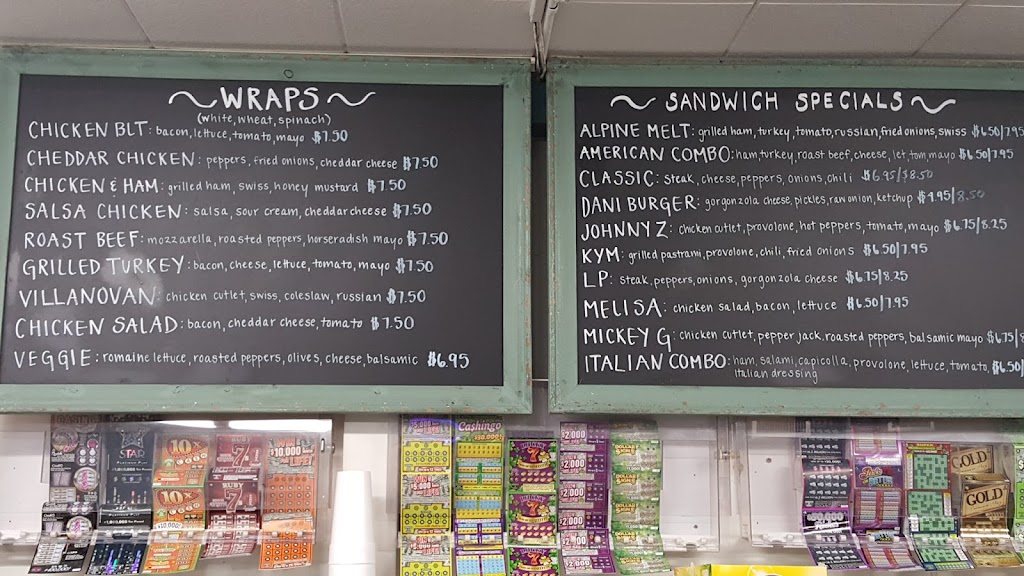 WRAPS
(white, wheat, spinach)
CHICKEN BLT: bacon, lettuce, tomato, mayo $7.50
CHEDDAR CHICKEN: peppers, fried onions, cheddar cheese $7.50
CHICKEN & HAM: grilled ham, swiss, honey mustard $7.50
SALSA CHICKEN: salsa, sour cream, cheddar cheese $7.50
ROAST BEEF: mozzarella, roasted peppers, horseradish mayo $7.50
GRILLED TURKEY: bacon, cheese, lettuce, tomato, mayo $7.50
VILLANOVAN: chicken cutlet, swiss, coleslaw, russian $7.50
CHICKEN SALAD: bacon, cheddar cheese, tomato $7.50
VEGGIE: romaine lettuce, roasted peppers, olives, cheese, balsamic $6.95
SANDWICH SPECIALS
ALPINE MELT: grilled ham, turkey, tomato, russian, fried onions, swiss $6.50/7.95
AMERICAN COMBO: ham, turkey, roast beef, cheese, let, tom, mayo $6.50/7.95
CLASSIC: steak, cheese, peppers, onions, chili $6.95/$8.50
DANI BURGER: gorgonzola cheese, pickles, raw onion, ketchup
JOHNNY Z: chicken cutlet, provolone, hot peppers, tomato, mayo $6.75/8.25
KYM: grilled pastrami, provolone, chili, fried onions $6.50/7.95
LP: steak, peppers, onions, gorgonzola cheese $6.75/8.25
MELISA: chicken salad, bacon, lettuce $6.50/7.95
MICKEY G: chicken cutlet, pepper jack, roasted peppers, balsamic mayo $6.75/
ITALIAN COMBO: ham, salami, capicolla, provolone, lettuce, tomato, $6.50/
italian dressing
Cashingo
$30,000!
STAR
10X
10X
7
$10,000
$2,000
$2,000
$2,000
$2,000
$2,000
GOLD
GOLD